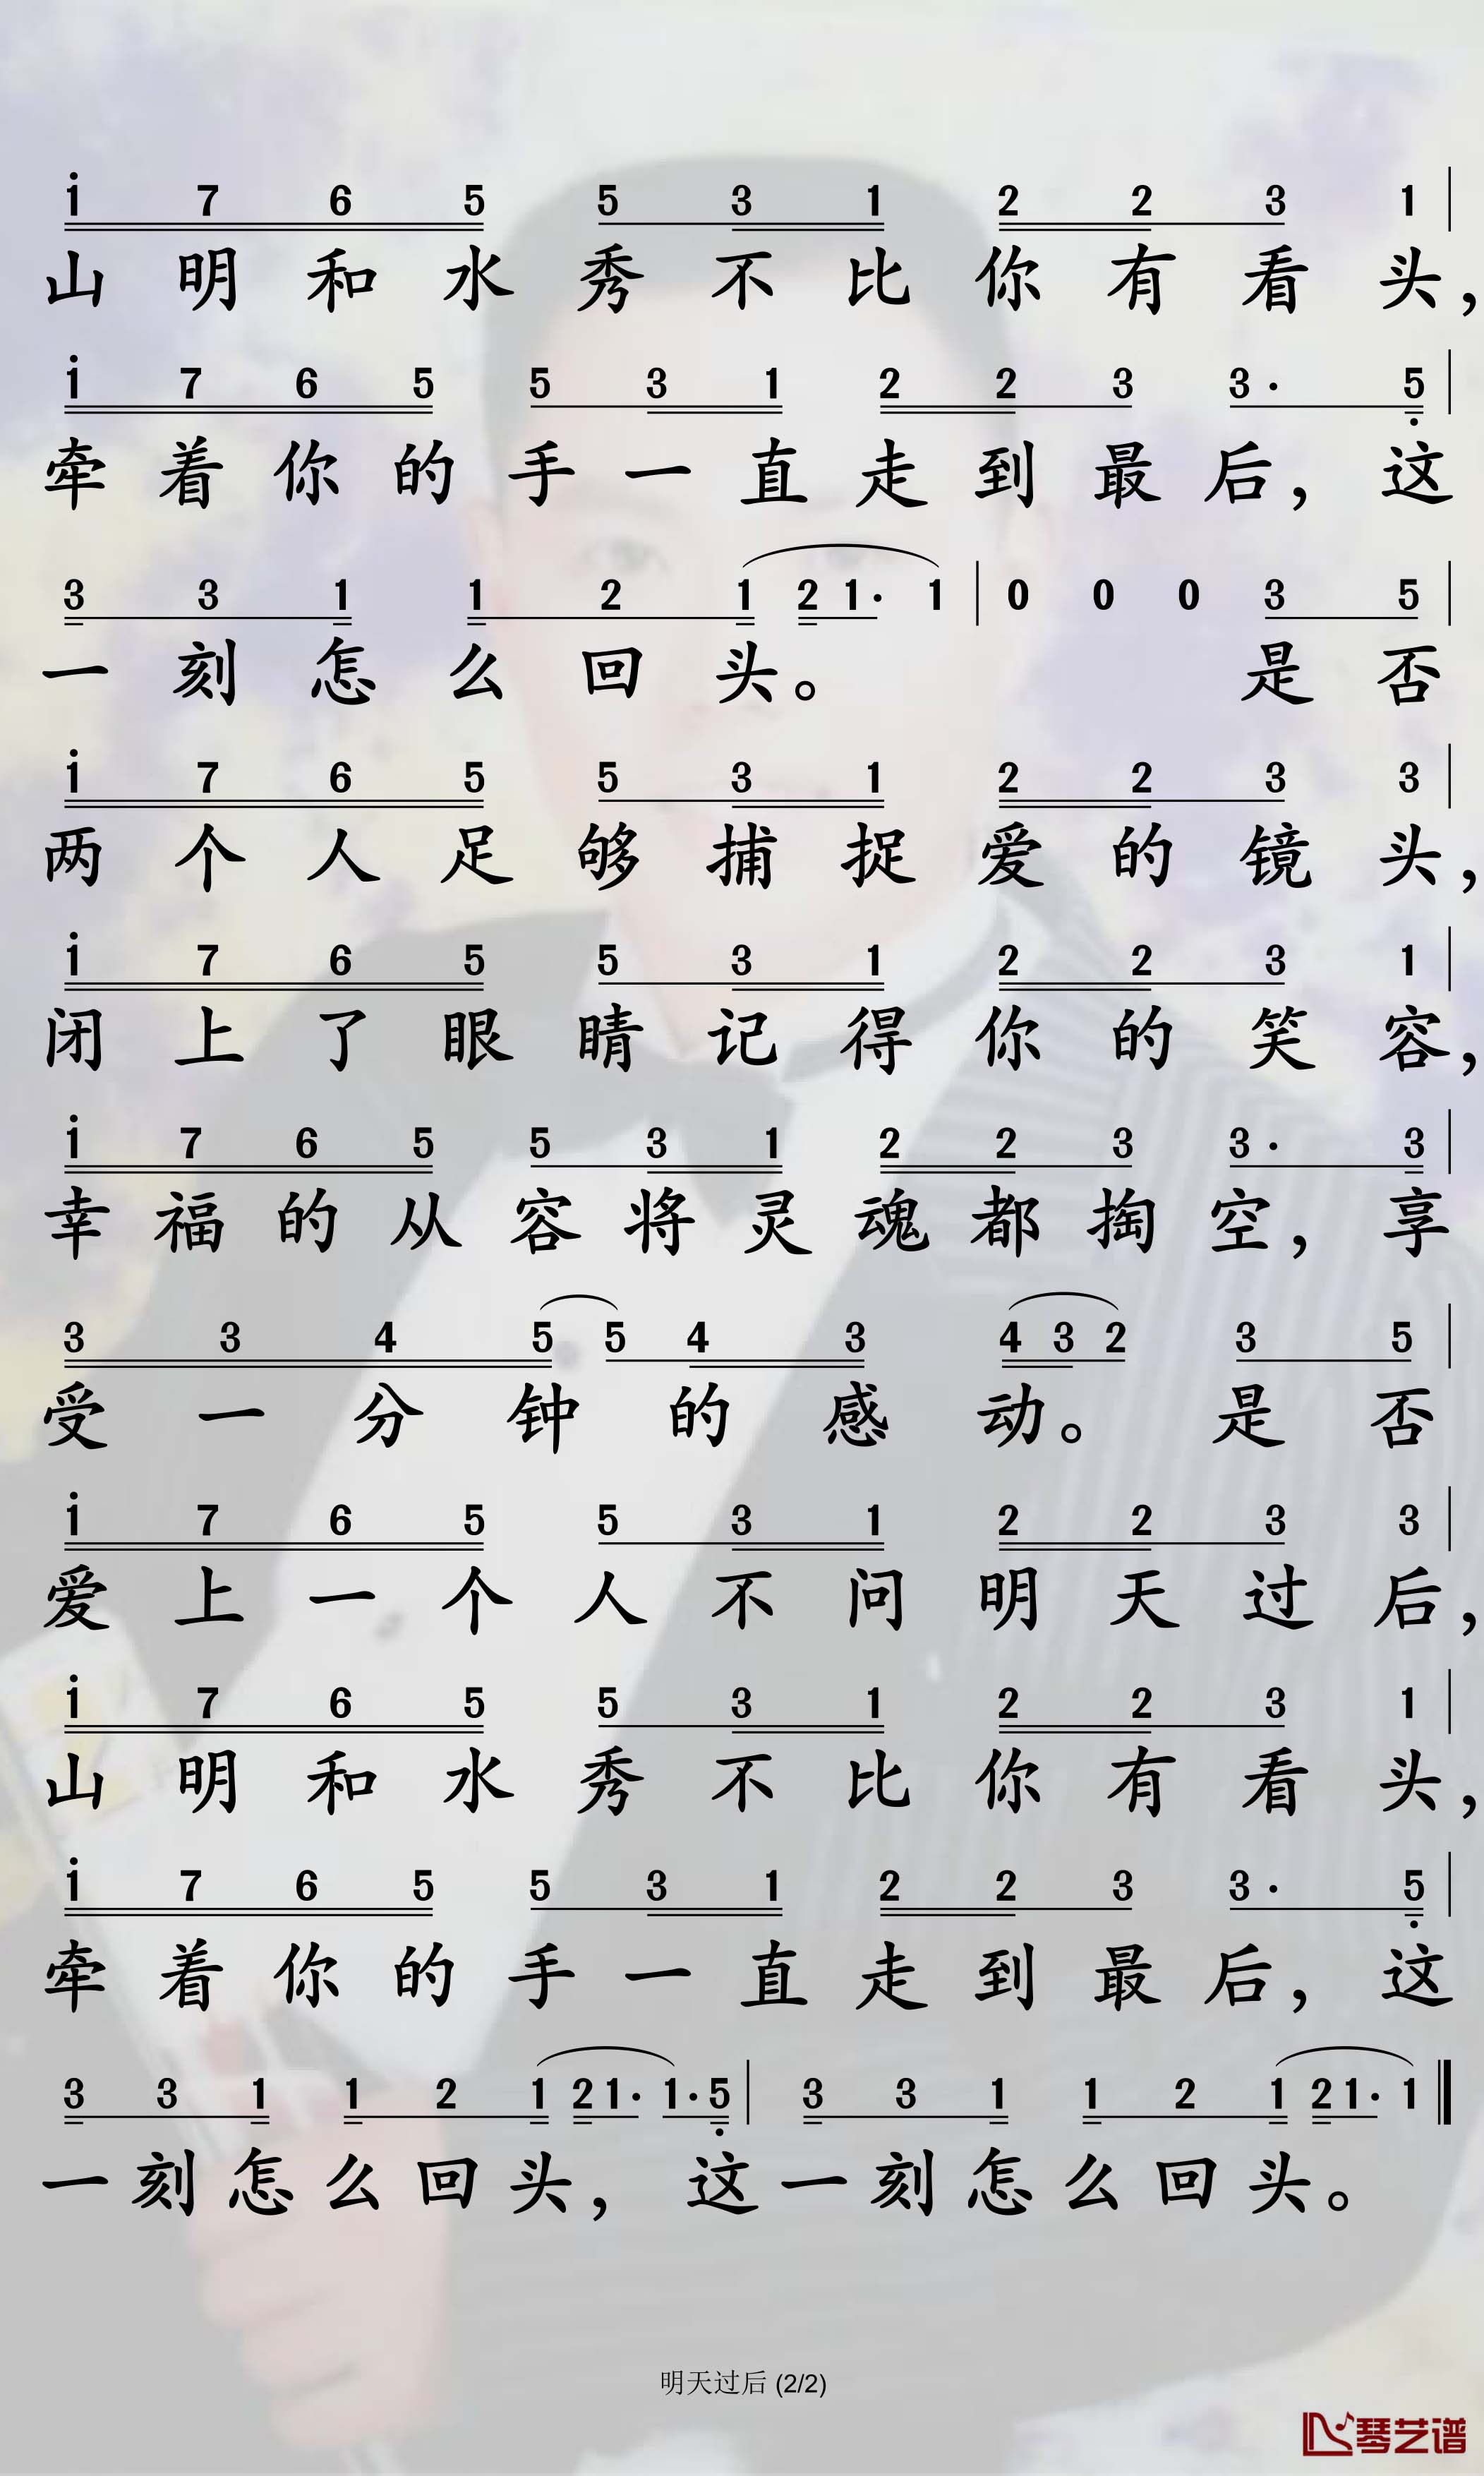 i 7 6 5 5 3 1 2 2 3 1
山明和水秀不比你有看头，
i 7 6 5 5 3 1 2 2 3 3· 5
牵着你的手一直走到最后，这
3 3 1 1 2 1 2 1· 1 | 0 0 0 3 5
一刻怎么回头。是否
i 7 6 5 5 3 1 2 2 3 3
两个人足够捕捉爱的镜头，
i 7 6 5 5 3 1 2 2 3 1
闭上了眼睛记得你的笑容，
i 7 6 5 5 3 1 2 2 3 3· 3
幸福的从容将灵魂都掏空，享
3 3 4 5 5 4 3 4 3 2 3 5
受一分钟的感动。是否
i 7 6 5 5 3 1 2 2 3 3
爱上一个人不问明天过后，
i 7 6 5 5 3 1 2 2 3 1
山明和水秀不比你有看头，
i 7 6 5 5 3 1 2 2 3 3· 5
牵着你的手一直走到最后，这
3 3 1 1 2 1 2 1· 1· 5 | 3 3 1 1 2 1 2 1· 1
一刻怎么回头，这一刻怎么回头。
明天过后 (2/2)
琴艺谱